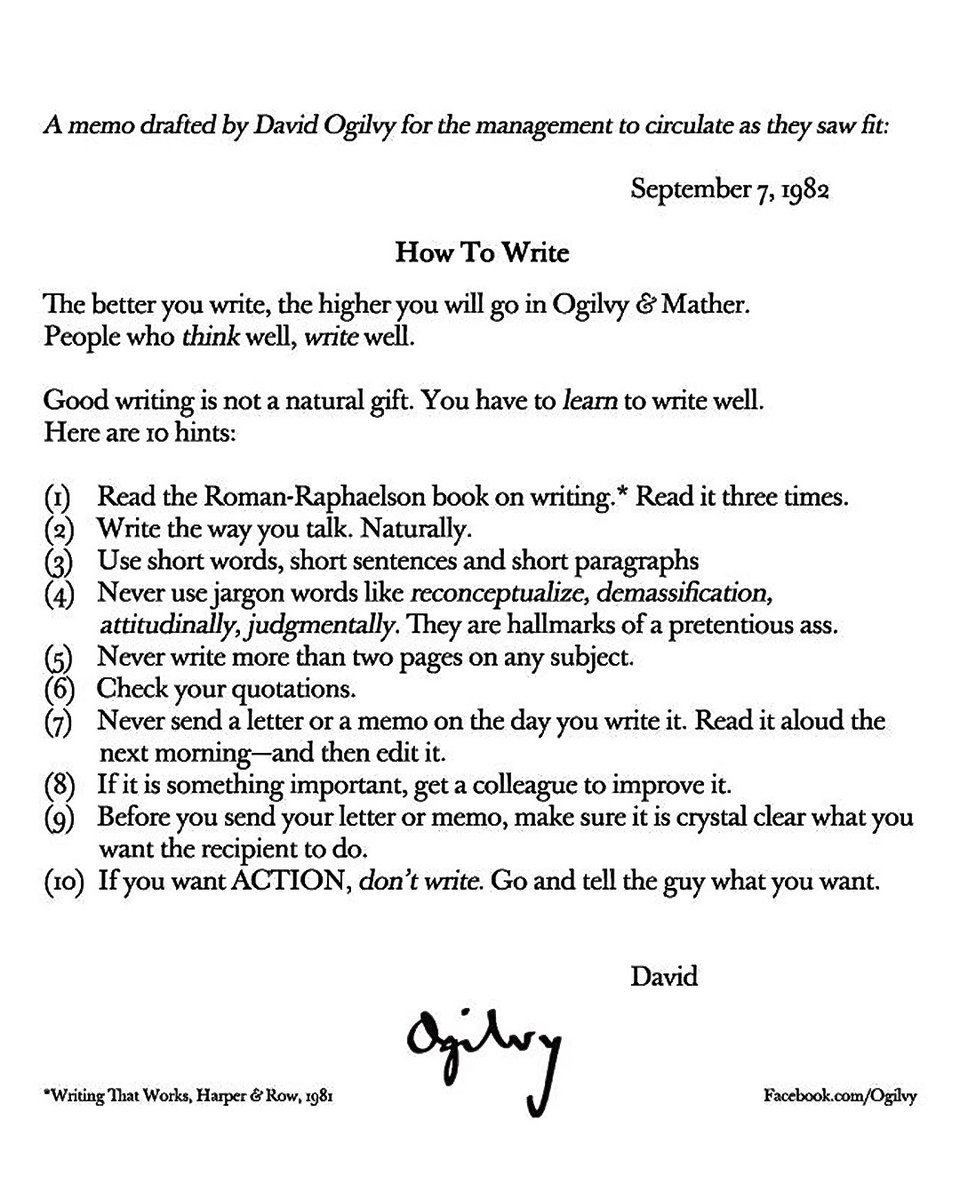 A memo drafted by David Ogilvy for the management to circulate as they saw fit:
September 7, 1982
How To Write
The better you write, the higher you will go in Ogilvy & Mather.
People who think well, write well.
Good writing is not a natural gift. You have to learn to write well.
Here are 10 hints:
(1) Read the Roman-Raphaelson book on writing.* Read it three times.
(2) Write the way you talk. Naturally.
(3) Use short words, short sentences and short paragraphs
(4) Never use jargon words like reconceptualize, demassification,
attitudinally, judgmentally. They are hallmarks of a pretentious ass.
(5) Never write more than two pages on any subject.
(6) Check your quotations.
(7) Never send a letter or a memo on the day you write it. Read it aloud the
next morning—and then edit it.
(8) If it is something important, get a colleague to improve it.
(9) Before you send your letter or memo, make sure it is crystal clear what you
want the recipient to do.
(10) If you want ACTION, don't write. Go and tell the guy what you want.
David
Ogilvy
*Writing That Works, Harper & Row, 1981
Facebook.com/Ogilvy